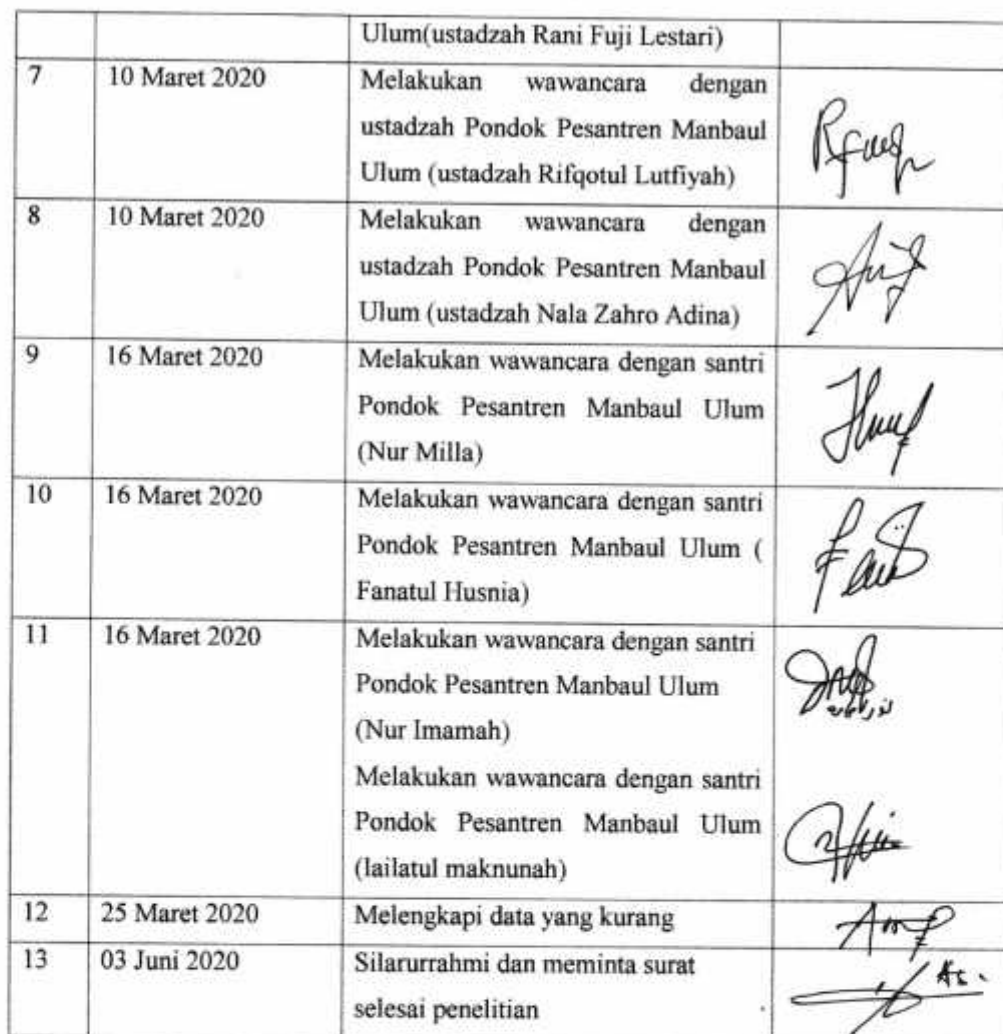 Ulum(ustadzah Rani Fuji Lestari)
7 10 Maret 2020 Melakukan wawancara dengan
ustadzah Pondok Pesantren Manbaul
Ulum (ustadzah Rifqotul Lutfiyah)
8 10 Maret 2020 Melakukan wawancara dengan
ustadzah Pondok Pesantren Manbaul
Ulum (ustadzah Nala Zahro Adina)
9 16 Maret 2020 Melakukan wawancara dengan santri
Pondok Pesantren Manbaul Ulum
(Nur Milla)
10 16 Maret 2020 Melakukan wawancara dengan santri
Pondok Pesantren Manbaul Ulum (
Fanatul Husnia)
11 16 Maret 2020 Melakukan wawancara dengan santri
Pondok Pesantren Manbaul Ulum
(Nur Imamah)
Melakukan wawancara dengan santri
Pondok Pesantren Manbaul Ulum
(lailatul maknunah)
12 25 Maret 2020 Melengkapi data yang kurang
13 03 Juni 2020 Silarurrahmi dan meminta surat
selesai penelitian